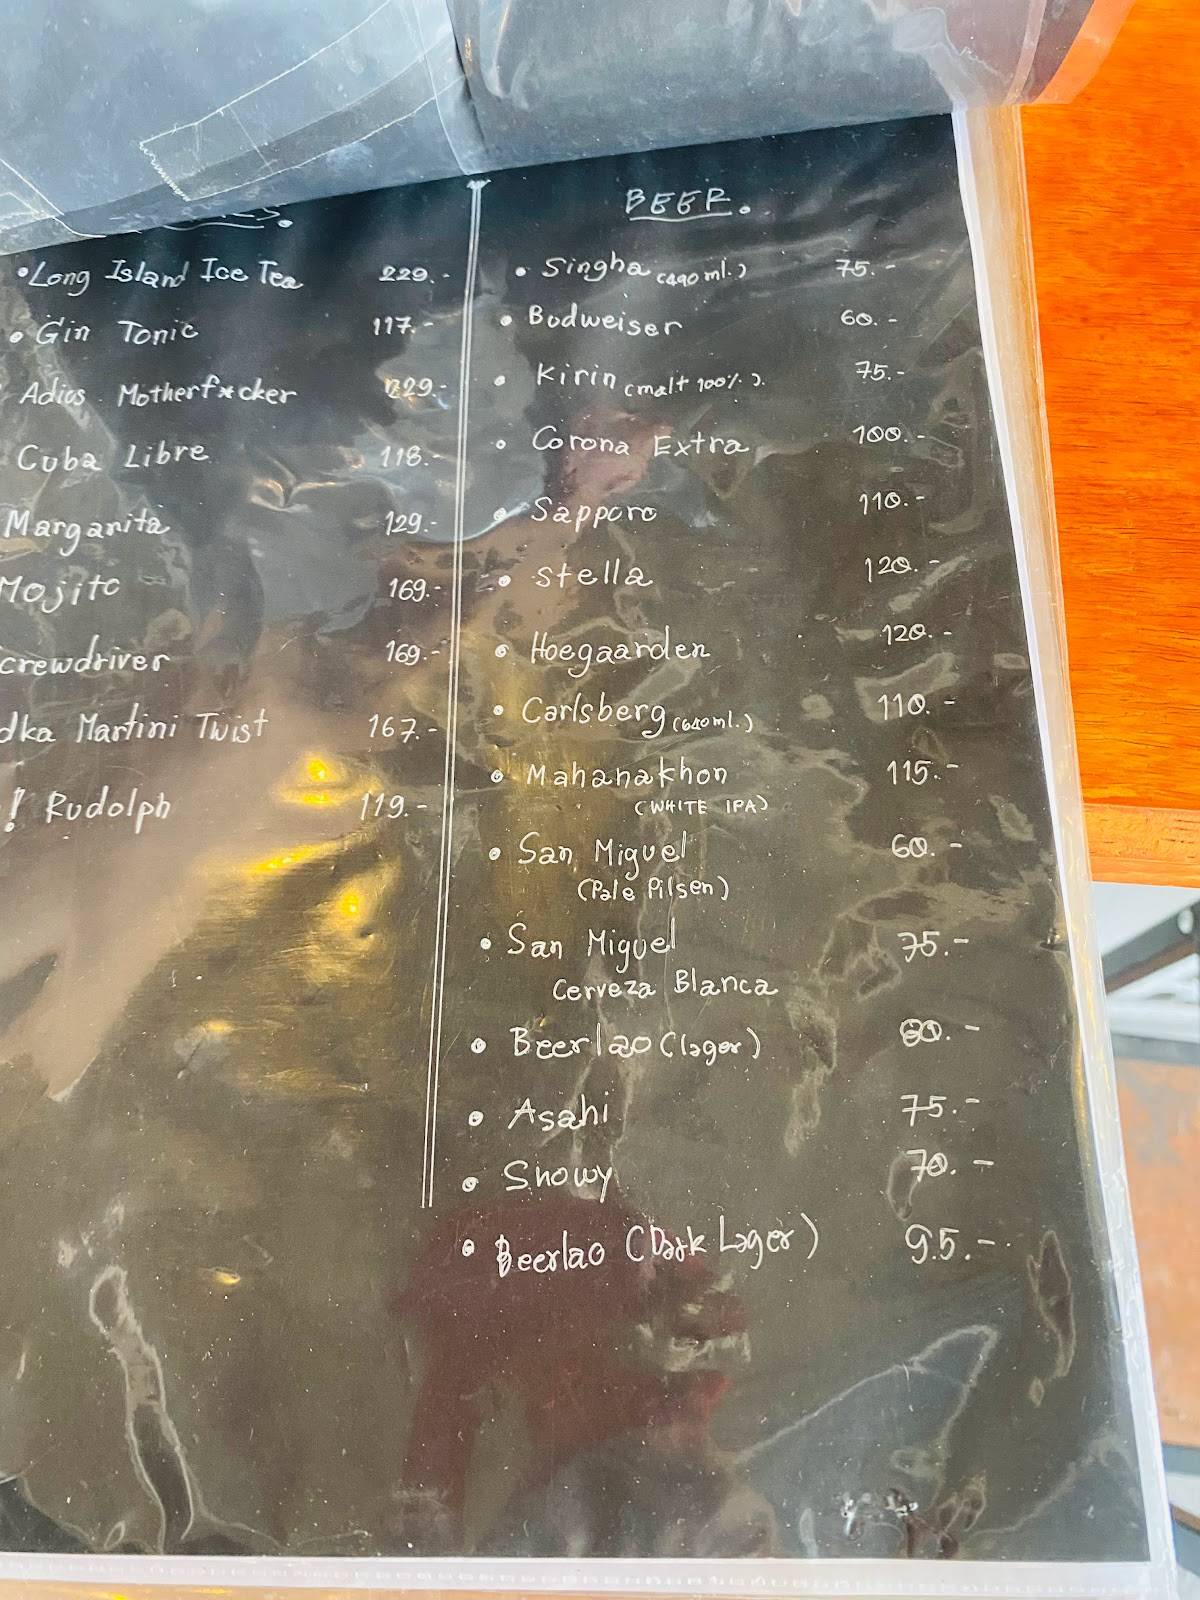 • Long Island Ice Tea 229.-
• Gin Tonic 117.-
Adios Motherf*cker 229.-
Cuba Libre 118.-
Marganita 129.-
Mojito 169.-
crewdriver 169.-
dka Martini Twist 167.-
! Rudolph 119.-
BEER.
• Singha (490 ml.) 75.-
• Budweiser 60.-
• Kirin (malt 100%.). 75.-
• Corona Extra 100.-
• Sapporo 110.-
• Stella 120.-
• Hoegaarden 120.-
• Carlsberg (640ml.) 110.-
• Mahanakhon 115.-
(WHITE IPA)
• San Miguel 60.-
(Pale Pilsen)
• San Miguel 75.-
Cerveza Blanca
• Beerlao (lager) 80.-
• Asahi 75.-
• Snowy 70.-
• Beerlao (Dark Lager) 95.-